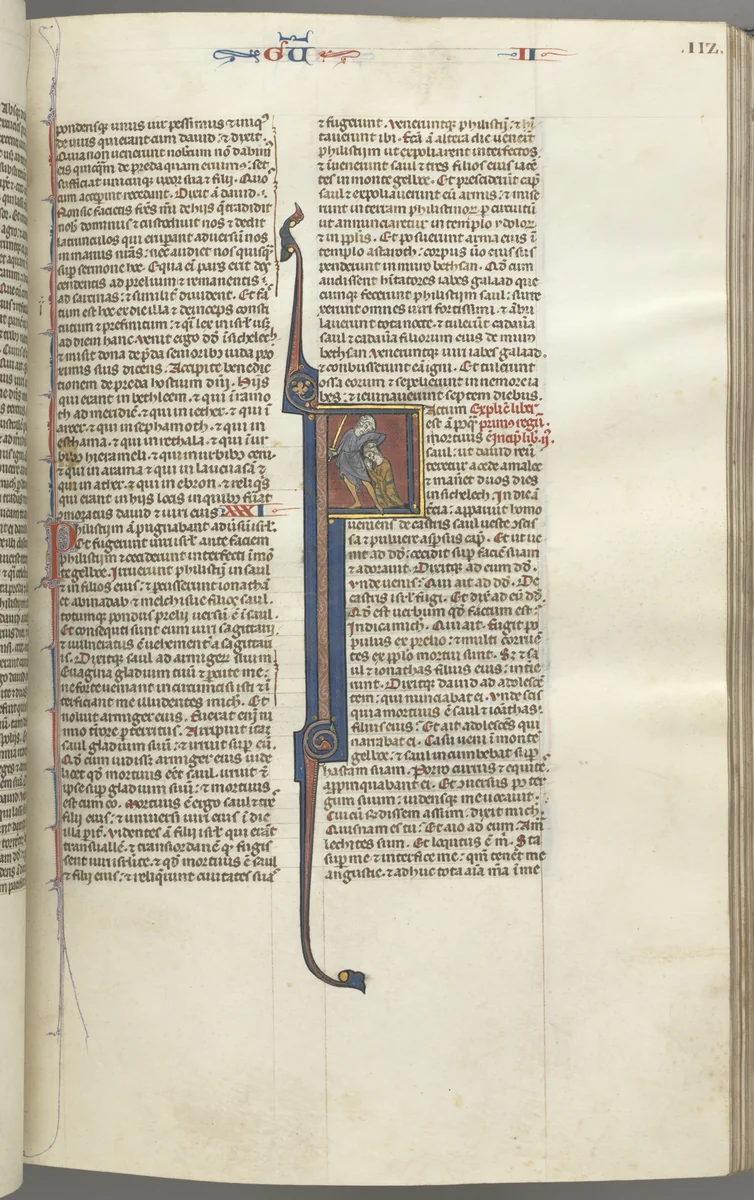 .112.
II
pondensque unus vir pessimus & iniqus
de viris qui erant cum david: & dixit.
Quia non venerunt nobiscum non dabim
eis quicqm de preda quam eruimus: set
sufficiat unicuique uxor sua & filii. Quos
cum acceperint recedant. Dixit a david.
Non sic facietis fres mi de hiis que tradidit
nob dominus & custodivit nos & dedit
latrunculos qui eruperant adversum nos
in manus nras: nec audiet nos quisq
sup sermone hoc. Equa eni pars erit des
cendentis ad prelium & remanentis
ad sarcinas: & similit divident. Et fact
tum est hoc ex die illa & deinceps consti
tutum & prefinitum: & qi lex in isrl usq
ad diem hanc. venit ergo dd in sichelech
& misit dona de pda senioribus iuda pro
ximis suis dicens. Accipite benedic
tionem de preda hostium dni. Hiis
qui erant in bethleem. & qui in ramo
th ad meridie. & qui in iether. & qui i
aroer. & qui in sephamoth. & qui in
esthama. & qui in rethala. & qui in ur
bib hierameli. & qui in urbibus ceni
& qui in arama & qui in lautuasa &
qui in ather. & qui in ebron. & reliqs
qui erant in hiis locis in quib fuat
moratus david & viri eius XXXI
Philistiim a pugnabant adusu isrl.
Et fugerunt viri isrl ante faciem
philistiim & ceciderunt interfecti i mo
te gelboe. Irruerunt philistii in saul
& in filios eius: & percusserunt ionatha
& abinadab & melchisue filios saul.
totumque pondus prelii versu e i saul.
Et consecuti sunt eum viri sagittarii
& vulneratus e vehement a sagittari
is. Dixitque saul ad armigerum suum
Evagina gladium tuu & pcute me:
ne forte veniant incircumcisi isti & i
terficiant me illudentes mich. Et
noluit armiger eius. Fuerat eni ni
mio timore pterritus. Arripuit itaq
saul gladium suu: & irruit sup eu.
Qd cum vidisset armiger eius vide
licet qd mortuus eet saul. irruit &
ipse sup gladium suu: & mortuus
est cum eo. Mortuus e ergo saul & tre
filii eius: & universi viri eius i die
illa pit. videntes a filii isrl qui erat
trans valle. & trans iordane q fugis
sent viri isrlite. & qd mortuus e saul
& filii eius: & reliqrunt civitates suas
& fugerunt. veneruntque philistii: & hi
taverunt ibi. Fca a altera die venert
philistiim ut expoliarent interfectos:
& invenerunt saul & tres filios eius iace
tes in monte gelboe. Et presciderunt cap
saul & expoliaverunt eu armis: & mise
runt in terram philistinor p circuitu
ut annunciaretur in templo ydolor
& in pplis. Et posuerunt arma eius i
templo astaroth: corpus vo eius sus
penderunt in muro bethsan. Qd cum
audissent hitatores iabes galaad que
cunque fecerunt philistiim saul: surre
xerunt omnes viri fortissimi. & abu
laverunt tota nocte. & tulerunt cadavera
saul & cadavera filiorum eius de muro
bethsan. veneruntque viri iabes galaad.
& combusserunt ea igni. Et tulerunt
ossa eorum & sepelierunt in nemore ia
bes: & ieiunaverunt septem diebus.
Factum Explic liber
est a postq primus regu.
mortuus e Incip lib. ii.
saul: ut david rev
teretur a cede amalec
& maneret duos dies
in sichelech. In die a
tercia: apparuit homo
veniens de castris saul veste cscis
sa & pulvere aspsus cap. Et ut ve
nit ad dd: cecidit sup facie suam
& adoravit. Dixitque ad eum dd.
Unde venis? Qui ait ad dd. De
castris isrl fugi. Et dix ad eu dd.
Qd est verbum qd factum est?
Indica mich. Qui ait. Fugit po
pulus ex prelio: & multi corrue
tes ex pplo mortui sunt. Sz & sa
ul & ionathas filius eius: intie
runt. Dixitque david ad adolesce
tem: qui nunciabat ei. Unde scis
quia mortuus e saul & ionathas
filius eius? Et ait adolescens qui
narrabat ei. Casu veni i monte
gelboe: & saul incumbebat sup
hastam suam. Porro currus & equites
appinquabant ei. Et cversus p ter
gum suum: vidensque me vocavit.
Cui cu rndissem assum: dixit mich.
Quisnam es tu? Et aio ad eum. Ama
lechites sum. Et locutus e m. Sta
sup me & interfice me: qm tenet me
angustie. & adhuc tota aia ma i me